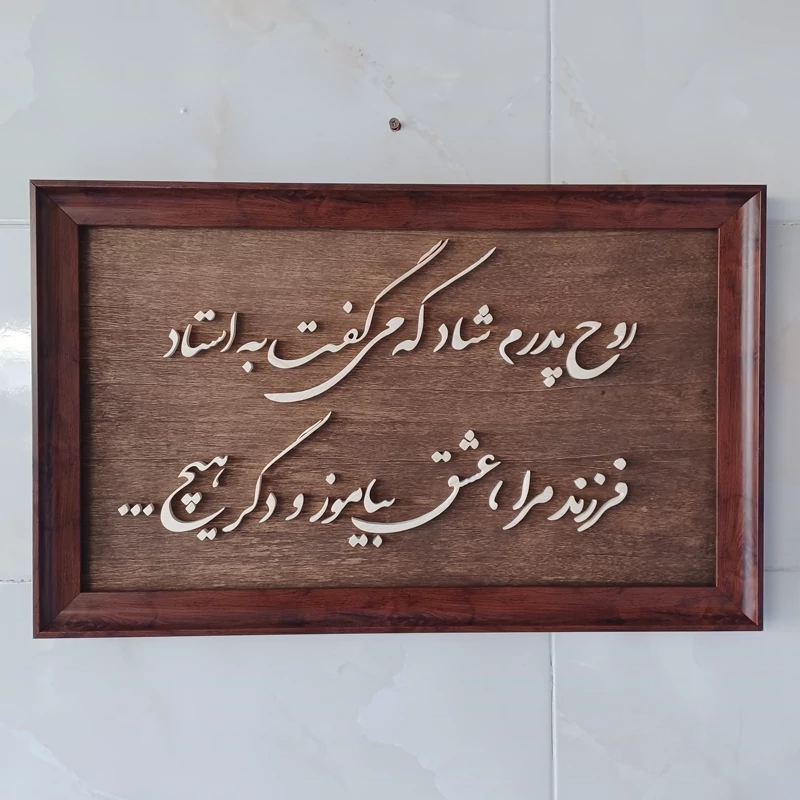 روح پدرم شاد که می گفت به استاد
فرزند مرا، عشق بیاموز و دگر هیچ...